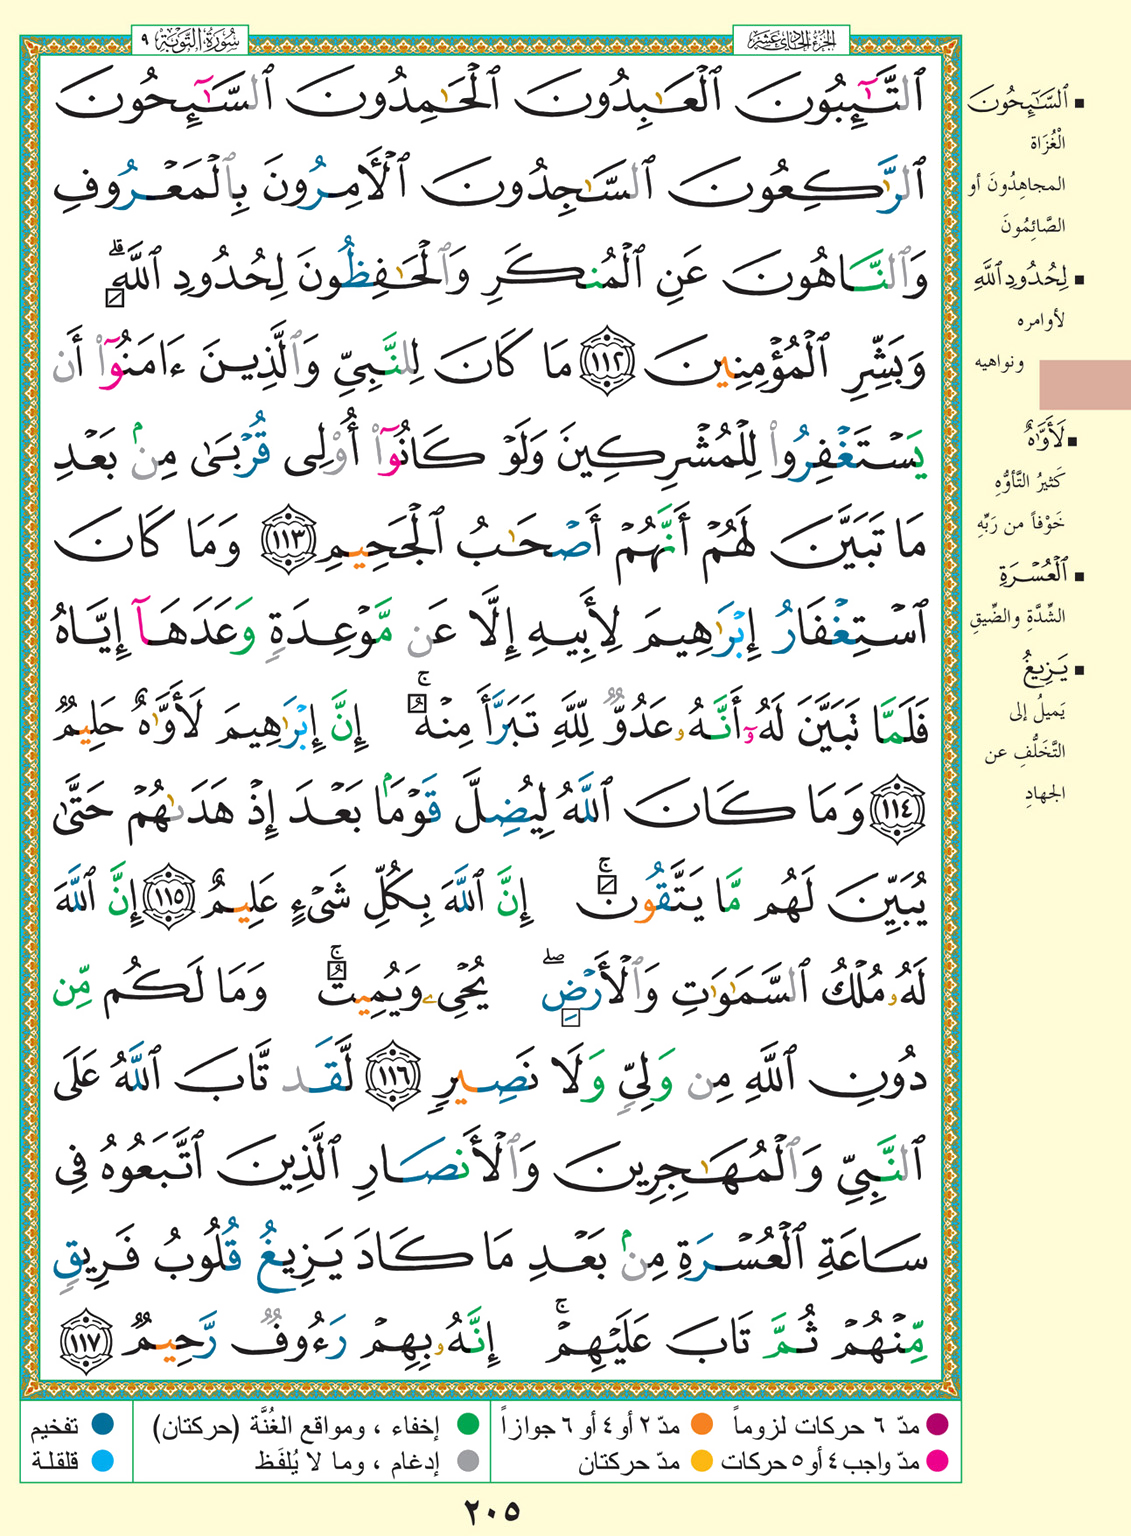 الجزء الحادي عشر
سُورَةُ التَّوْبَةِ ٩
ٱلتَّـٰٓئِبُونَ ٱلْعَـٰبِدُونَ ٱلْحَـٰمِدُونَ ٱلسَّـٰٓئِحُونَ
ٱلرَّٰكِعُونَ ٱلسَّـٰجِدُونَ ٱلْأَمِرُونَ بِٱلْمَعْرُوفِ
وَٱلنَّاهُونَ عَنِ ٱلْمُنكَرِ وَٱلْحَـٰفِظُونَ لِحُدُودِ ٱللَّهِۗ
وَبَشِّرِ ٱلْمُؤْمِنِينَ ١١٢ مَا كَانَ لِلنَّبِيِّ وَٱلَّذِينَ ءَامَنُوٓا۟ أَن
يَسْتَغْفِرُوا۟ لِلْمُشْرِكِينَ وَلَوْ كَانُوٓا۟ أُو۟لِى قُرْبَىٰ مِنۢ بَعْدِ
مَا تَبَيَّنَ لَهُمْ أَنَّهُمْ أَصْحَـٰبُ ٱلْجَحِيمِ ١١٣ وَمَا كَانَ
ٱسْتِغْفَارُ إِبْرَٰهِيمَ لِأَبِيهِ إِلَّا عَن مَّوْعِدَةٍ وَعَدَهَآ إِيَّاهُ
فَلَمَّا تَبَيَّنَ لَهُۥٓ أَنَّهُۥ عَدُوٌّ لِّلَّهِ تَبَرَّأَ مِنْهُۚ إِنَّ إِبْرَٰهِيمَ لَأَوَّٰهٌ حَلِيمٌ
١١٤ وَمَا كَانَ ٱللَّهُ لِيُضِلَّ قَوْمَۢا بَعْدَ إِذْ هَدَىٰهُمْ حَتَّىٰ
يُبَيِّنَ لَهُم مَّا يَتَّقُونَۚ إِنَّ ٱللَّهَ بِكُلِّ شَىْءٍ عَلِيمٌ ١١٥ إِنَّ ٱللَّهَ
لَهُۥ مُلْكُ ٱلسَّمَـٰوَٰتِ وَٱلْأَرْضِۖ يُحْىِۦ وَيُمِيتُۚ وَمَا لَكُم مِّن
دُونِ ٱللَّهِ مِن وَلِيٍّ وَلَا نَصِيرٍ ١١٦ لَّقَد تَّابَ ٱللَّهُ عَلَى
ٱلنَّبِيِّ وَٱلْمُهَـٰجِرِينَ وَٱلْأَنصَارِ ٱلَّذِينَ ٱتَّبَعُوهُ فِى
سَاعَةِ ٱلْعُسْرَةِ مِنۢ بَعْدِ مَا كَادَ يَزِيغُ قُلُوبُ فَرِيقٍ
مِّنْهُمْ ثُمَّ تَابَ عَلَيْهِمْۚ إِنَّهُۥ بِهِمْ رَءُوفٌ رَّحِيمٌ ١١٧
▪ ٱلسَّـٰٓئِحُونَ
الْغُزَاة
المجاهِدُونَ أو
الصَّائِمُونَ
▪ لِحُدُودِ ٱللَّهِ
لأوامره
ونواهيه
▪ لَأَوَّٰهٌ
كَثيرُ التَّأوُّهِ
خَوْفاً من رَبِّهِ
▪ ٱلْعُسْرَةِ
الشِّدَّةِ والضِّيقِ
▪ يَزِيغُ
يَميلُ إلى
التَّخَلُّفِ عن
الجهادِ
مدّ ٦ حركات لزوماً مدّ ٢ أو ٤ أو ٦ جوازاً إخفاء ، ومواقع الغُنَّة (حركتان) تفخيم
مدّ واجب ٤ أو ٥ حركات مدّ حركتان إدغام ، وما لا يُلفَظ قلقلة
٢٠٥